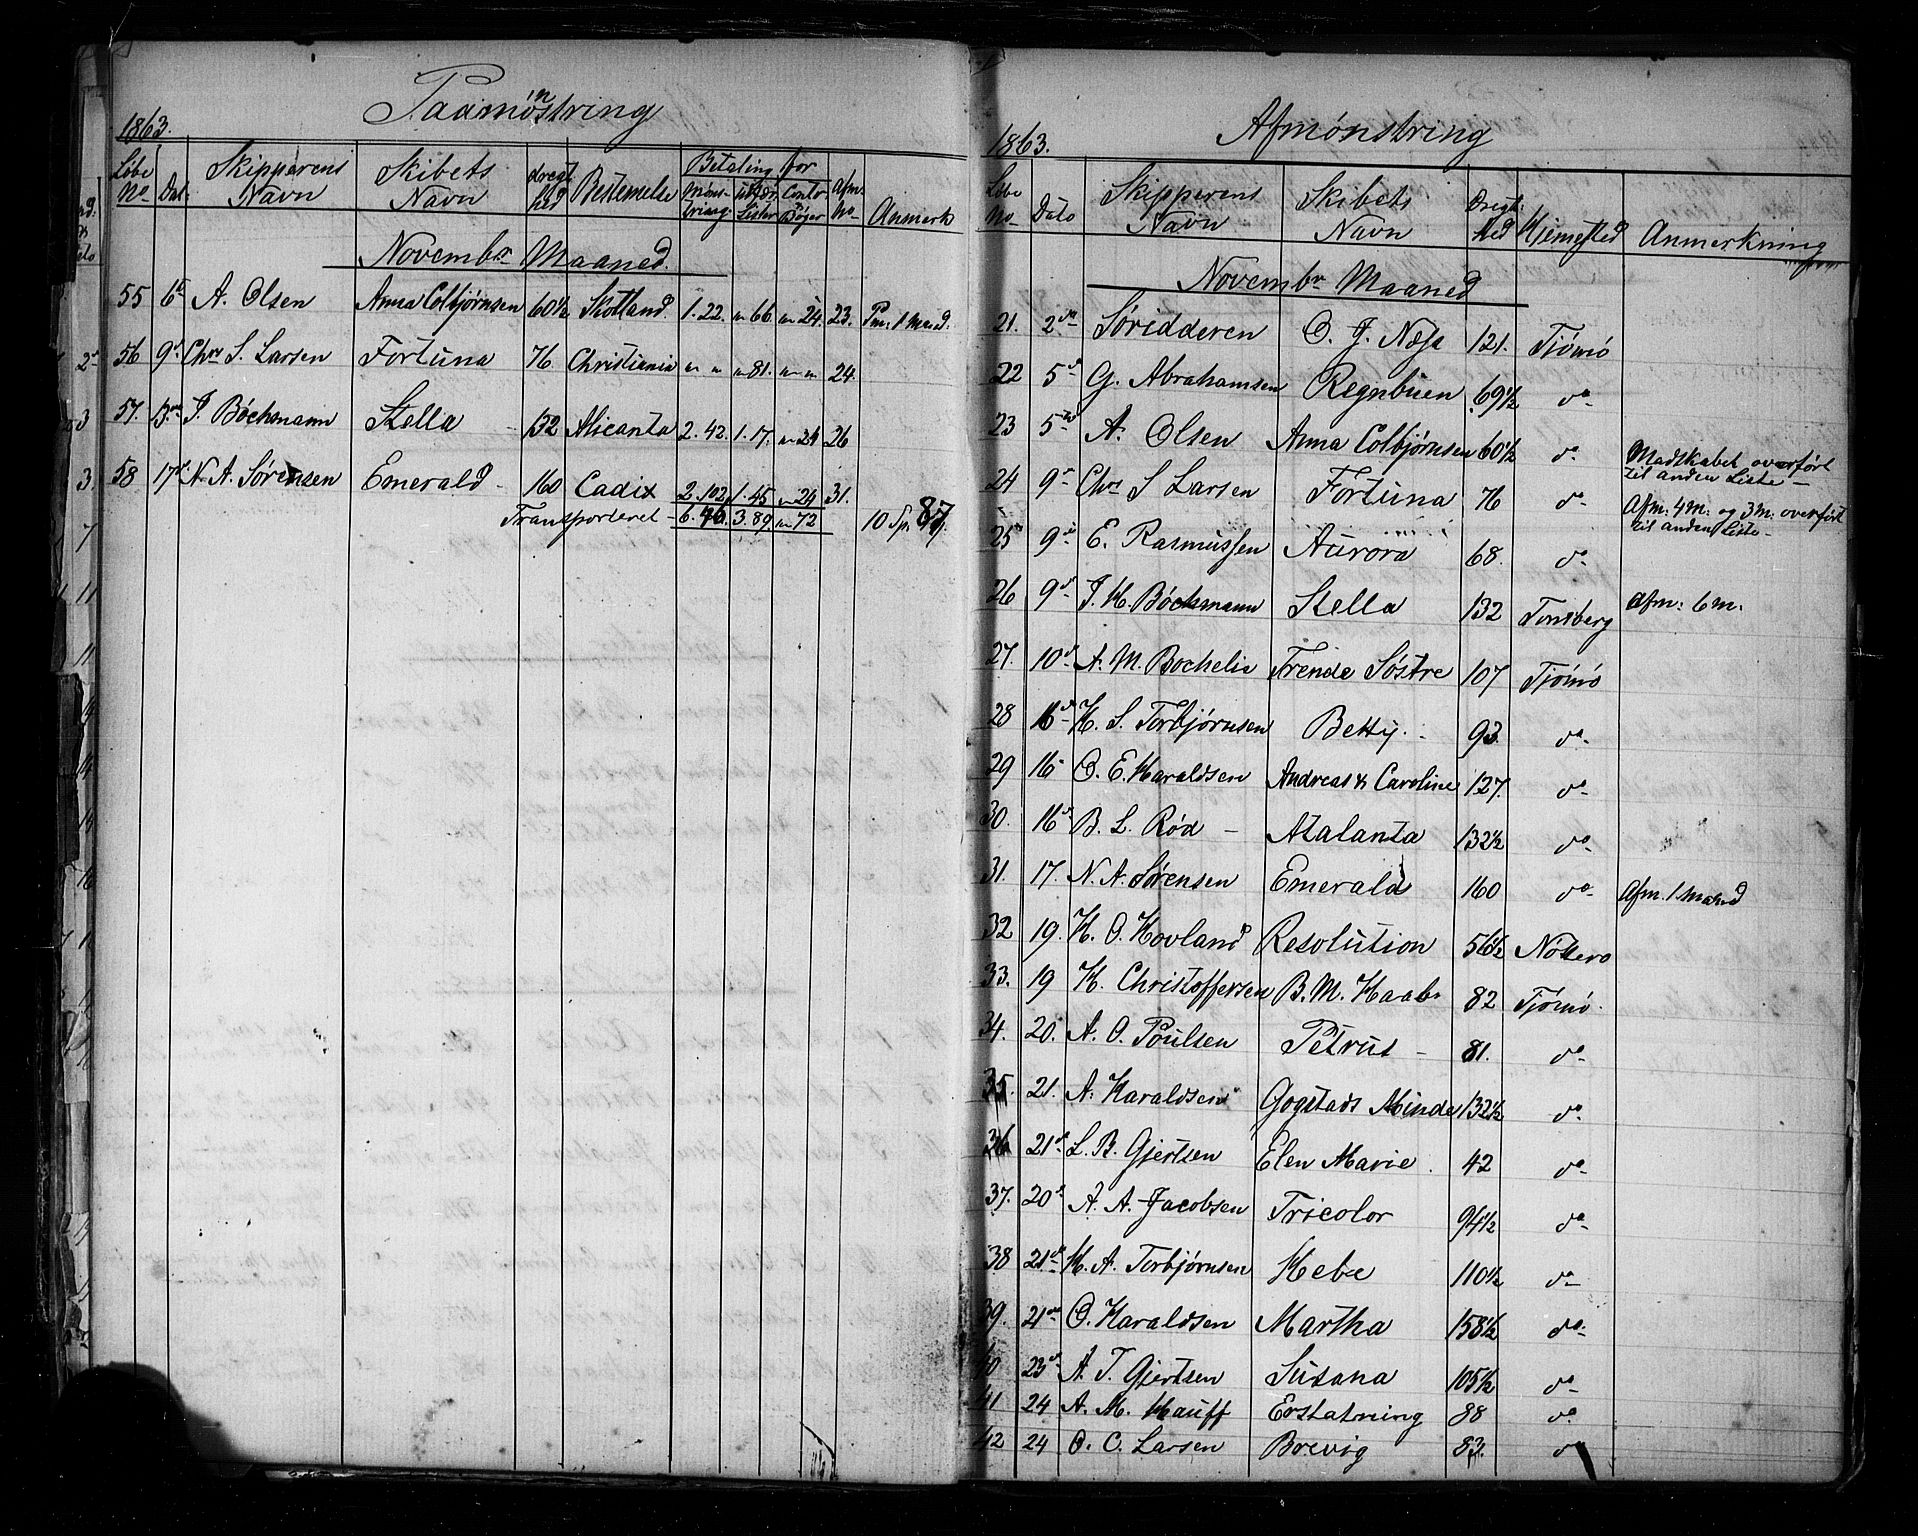 Paamönstring
1863.
Löbe No Dat. Skipperens Navn Skibets Navn dregt hed Bestemelse Betaling for Mönstring Lister Contr Böger Afm. No Anmerk
Novembr Maaned.
55 6te A. Olsen Anna Colbjørnsen 60½ Skotland. 1.22. " 66. " 24. 23. Pm. 1 Mand.
56 9d Chrs S. Larsen Fortuna 76 Christiania " " " 81. " " 24.
57. 13de J. Böckmann Stella 132 Alicanta 2. 42. 1. 17. " 24 26
58 17d N. A. Sørensen Emerald 160 Cadix 2. 102. 1. 45 " 24 31.
Transporteret 6. 46. 3. 89. " 72 10 Sp. 87
Afmønstring
1863.
Löbe No Dato Skipperens Navn Skibets Navn Dregt hed Hjemsted Anmerkning
Novembr Maaned
21. 2den Søridderen O. J. Næss 121. Tjömö
22 5d G. Abrahamsen Regnbuen 69½ do
23 5te A. Olsen Anna Colbjørnsen 60½ do Madskabet overført til anden Liste
24 9de Chrs S Larsen Fortuna 76 do Afm: 4 M: og 3 M: overført til anden Liste
25 9de E. Rasmussen Aurora 68. do
26 9d J. H. Böckmann Stella 132 Tønsberg Afm: 6 M:
27. 10d A. M. Bochelie Trende Søstre 107 Tjömö
28 16d H. S. Torbjørnsen Betty. 93. do
29 16 O. E. Haraldsen Andreas & Caroline 127. do
30. 16d B. L. Rød Atalanta 132½ do
31. 17. N. A. Sørensen Emerald 160 do Afm. 1 Mand
32 19. H. O. Hovland Resolution 56½ Nötterö
33. 19 H. Christoffersen B. M. Haabe 82 Tjömö.
34. 20. A. O. Poulsen Petrus 81. do
35. 21. A. Haraldsen Gogstads Minde 132½ do
36 21d L. B. Gjertsen Elen Marie 42 do
37. 20d A. A. Jacobsen Tricolor 94½ do
38 21de H. A. Torbjørnsen Hebe 110½ do
39. 21de O. Haraldsen Martha 158½ do.
40 23d A. T. Gjertsen Susana 105½ do
41 24 A. M. Hauff Erstatning 88 do
42 24 O. C. Larsen Brevig 83. do